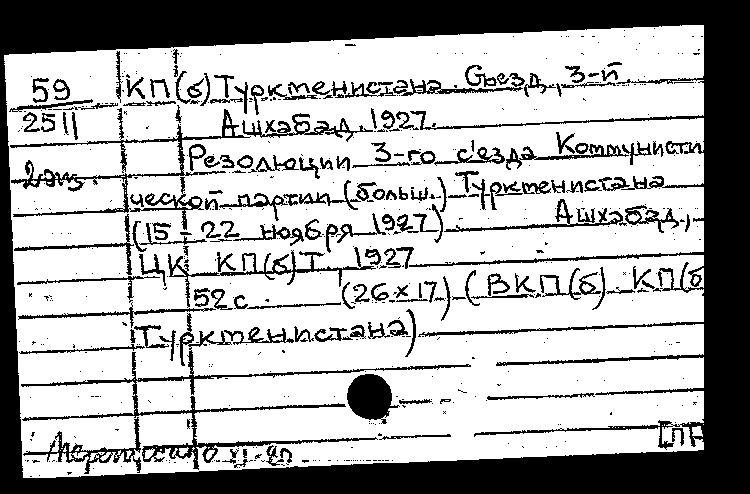 59 КП(б) Туркменистана. Съезд, 3-й.
2511 Ашхабад. 1927.
Резолюции 3-го с'езда Коммунисти
2 экз.
ческой партии (больш.) Туркменистана
(15-22 ноября 1927). Ашхабад.,
ЦК КП(б)Т, 1927
52 с. (26х17) (ВКП(б) КП(б
Туркменистана)
Переписано XI-